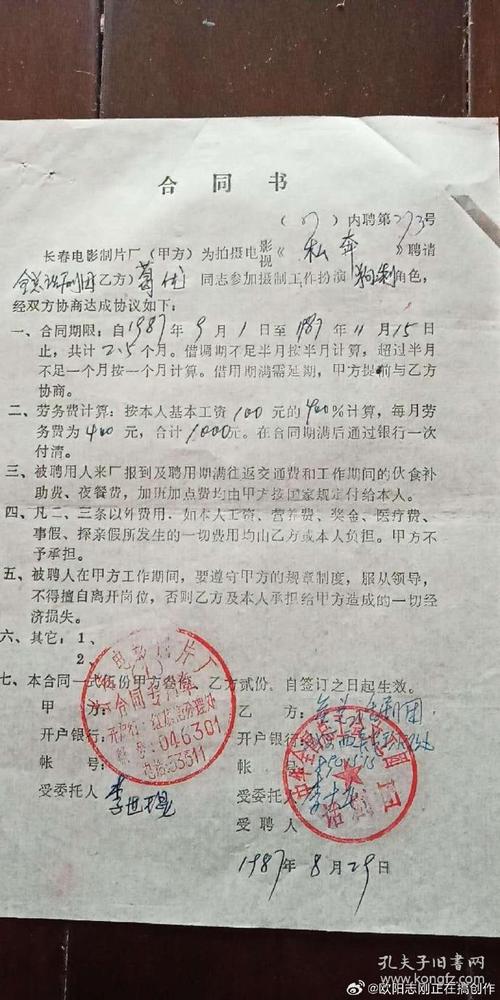 合同书
(87)内聘第273号
长春电影制片厂(甲方)为拍摄电影视《私奔》聘请
全总话剧团(乙方)葛优同志参加摄制工作扮演 角色,
经双方协商达成协议如下:
一、合同期限:自1987年9月1日至1987年11月15日
止,共计2.5个月。借调期不足半月按半月计算,超过半月
不足一个月按一个月计算。借用期满需延期,甲方提前与乙方
协商。
二、劳务费计算:按本人基本工资100元的400%计算,每月劳
务费为400元,合计1000元。在合同期满后通过银行一次
付清。
三、被聘用人来厂报到及聘用期满往返交通费和工作期间的伙食补
助费、夜餐费,加班加点费均由甲方按国家规定付给本人。
四、凡二、三条以外费用,如本人工资、营养费、奖金、医疗费、
事假、探亲假所发生的一切费用均由乙方或本人负担。甲方不
予承担。
五、被聘人在甲方工作期间,要遵守甲方的规章制度,服从领导,
不得擅自离开岗位,否则乙方及本人承担给甲方造成的一切经
济损失。
六、其它:1、
2、
七、本合同一式伍份甲方叁份,乙方贰份,自签订之日起生效。
甲方: 乙方:全总话剧团
开户银行: 开户银行:
帐号: 帐号:
受委托人 受委托人
受聘人
1987年8月29日
长春电影制片厂
合同专用章
开户行:红旗街分理处
帐号:046301
电话:53311
中华全国总工会文工团
话剧团
孔夫子旧书网
www.kongfz.com
@欧阳志刚正在搞创作